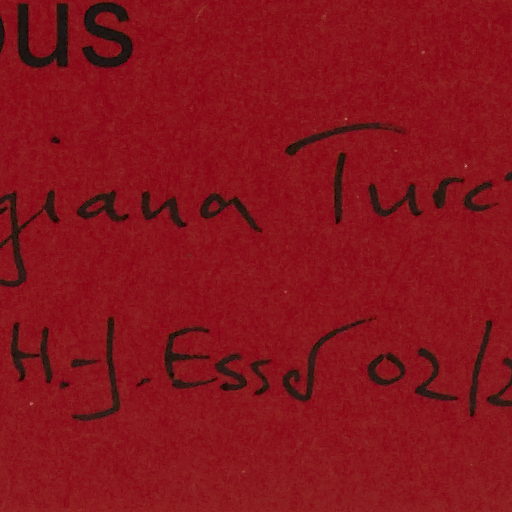 ous
giana Turc
H.-J. Esser 02/2